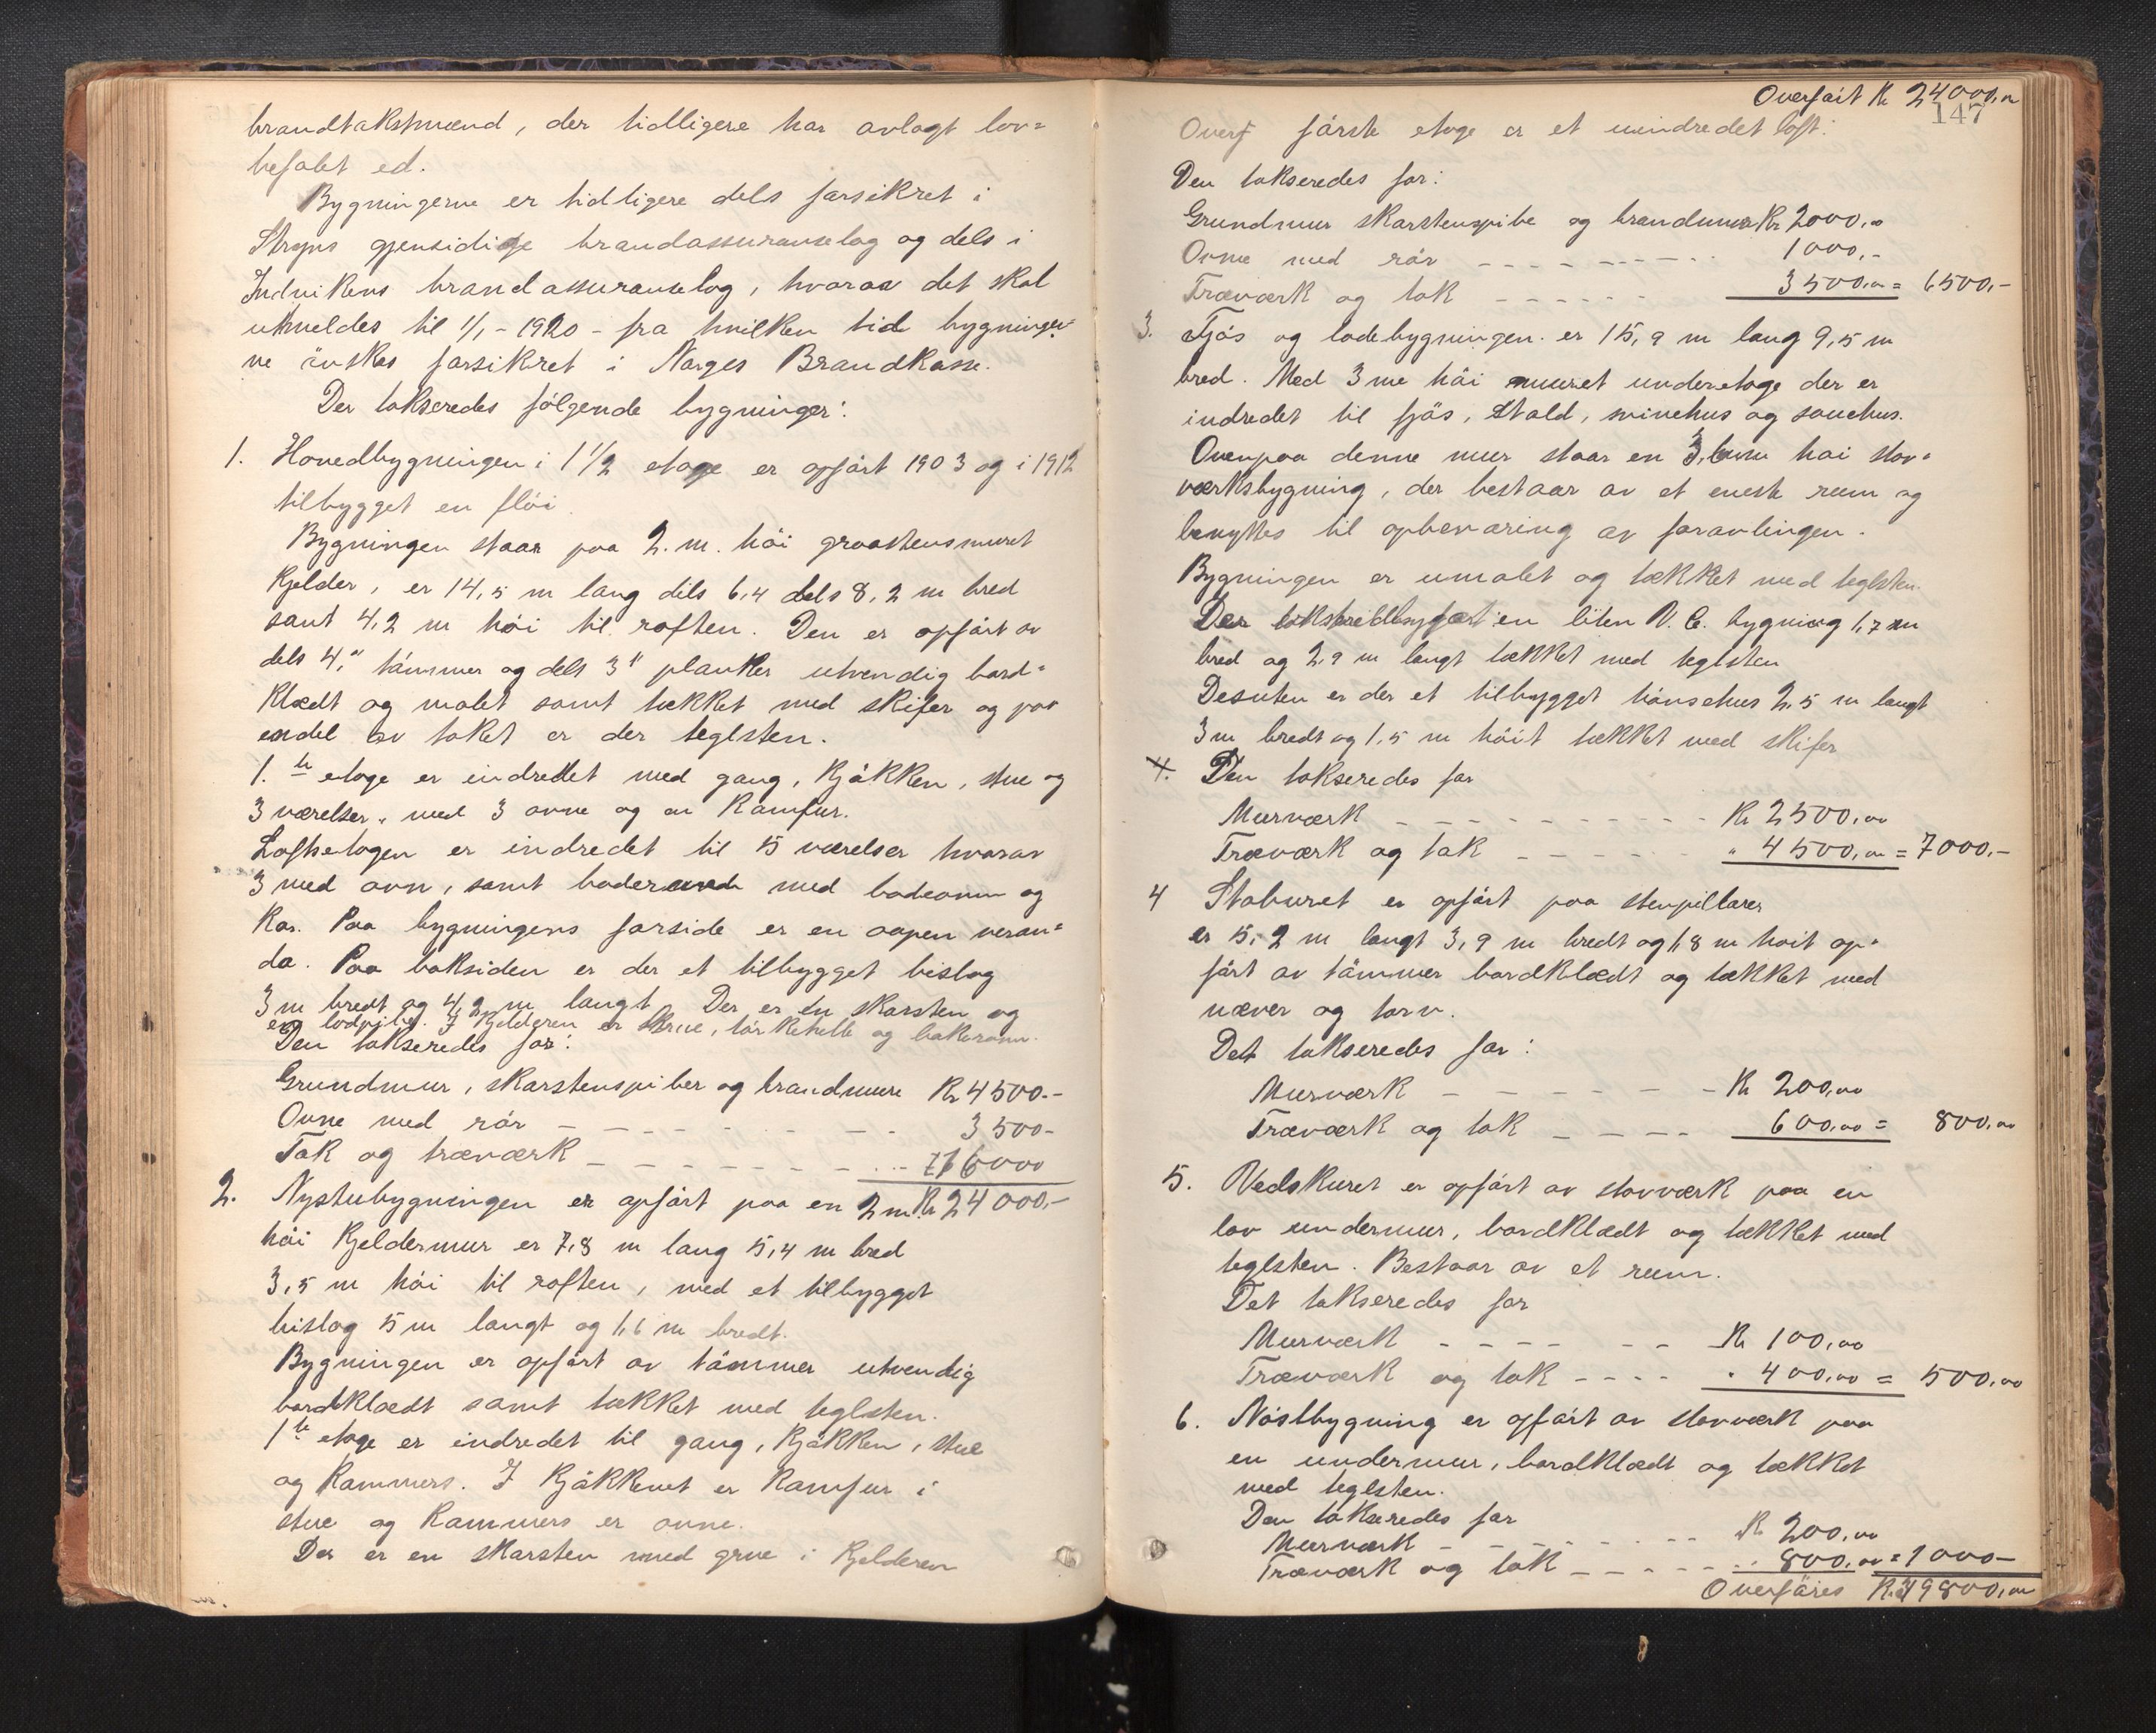 brandtakstmænd, der tidligere har avlagt lov=
befalet ed.
Bygningerne er tidligere dels forsikret i
Stryns gjensidige brandassuranselag og dels i
Indvikens brandassuranselag, hvorav det skal
utmeldes til 1/1-1920 - fra hvilken tid bygninger=
ne ønskes forsikret i Norges Brandkasse.
Der takseredes følgende bygninger:
1. Hovedbygningen i 1 1/2 etage er opført 1903 og i 1912
tilbygget en fløi.
Bygningen staar paa 2. m. høi graastensmuret
kjelder, er 14,5 m lang dels 6,4 dels 8,2 m bred
samt 4,2 m høi til roften. Den er opført av
dels 4" tømmer og dels 3" planker utvendig bord=
klædt og malet samt tækket med skifer og paa
endel av taket er der teglsten.
1.te etage er indredet med gang, kjøkken, stue og
3 værelser, med 3 ovne og en Kamfur.
Loftsetagen er indredet til 5 værelser hvorav
3 med ovn, samt med badeovn og
kar. Paa bygningens forside er en aapen veran=
da. Paa baksiden er der et tilbygget bislag
3 m bredt og 4,2 m langt. Der er en skorsten og
en lodpibe. I Kjelderen er Grue, tørkehelle og bakerovn.
Den takseredes for:
Grundmur, skorstenspiber og brandmure Kr 4500.-
Ovne med rør - - - - - - - 3500-
Tak og træværk - - - - - - - 16000
Kr 24000,-
2. Nystubygningen er opført paa en 2 m.
høi Kjeldermur er 7,8 m lang 5,4 m bred
3,5 m høi til roften, med et tilbygget
bislag 5 m langt og 1,6 m bredt.
Bygningen er opført av tømmer utvendig
bordklædt samt tækket med teglsten.
1te etage er indredet til gang, Kjøkken, stue
og Kammers. I Kjøkkenet er Kamfur i
stue og Kammers er ovne.
Der er en skorsten med grue i Kjelderen
Overført Kr 24000,00
147
Over første etage er et uindredet loft:
Den takseredes for:
Grundmur skorstenspibe og brandmur Kr 2000,00
Ovne med rør - - - - - - - 1000,-
Træværk og tak - - - - - - 3500,00 = 6500,-
3. Fjøs og ladebygningen. er 15,9 m lang 9,5 m
bred. Med 3 me høi muret underetage der er
indredet til fjøs, Stald, svinehus og sauehus.
Ovenpaa denne mur staar en høi stav=
værksbygning, der bestaar av et eneste rum og
benyttes til opbevaring av foravlingen.
Bygningen er umalet og tækket med teglsten.
Der en liten V. C. bygning 1,7 m
bred og 2,9 m langt tækket med teglsten
Desuten er der et tilbygget hønsehus 2,5 m langt
3 m bredt og 1,5 m høit tækket med skifer
4. Den takseredes for
Murværk - - - - - - - - - Kr 2500,00
Træværk og tak - - - - - " 4500,00 = 7000,-
4 Staburet er opført paa stenpillarer
er 5,2 m langt 3,9 m bredt og 1,8 m høit op=
ført av tømmer bordklædt og tækket med
næver og torv.
Det takseredes for:
Murværk - - - - - - Kr 200,00
Træværk og tak - - - - 600,00 = 800,00
5. Vedskuret er opført av stavværk paa en
lav undermur, bordklædt og tækket med
teglsten. Bestaar av et rum.
Det takseredes for
Murværk - - - - - - Kr 100,00
Træværk og tak - - - - " 400,00 = 500,00
6. Nøstbygning er opført av stavværk paa
en undermur, bordklædt og tækket
med teglsten.
Den takseredes for
Murværk - - - - - - - Kr 200,00
Træværk og tak - - - - - - 800,00 = 1000-
Overføres Kr. 39800,00